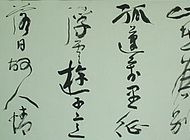 孤蓬萬里征
浮雲遊子意
落日故人情